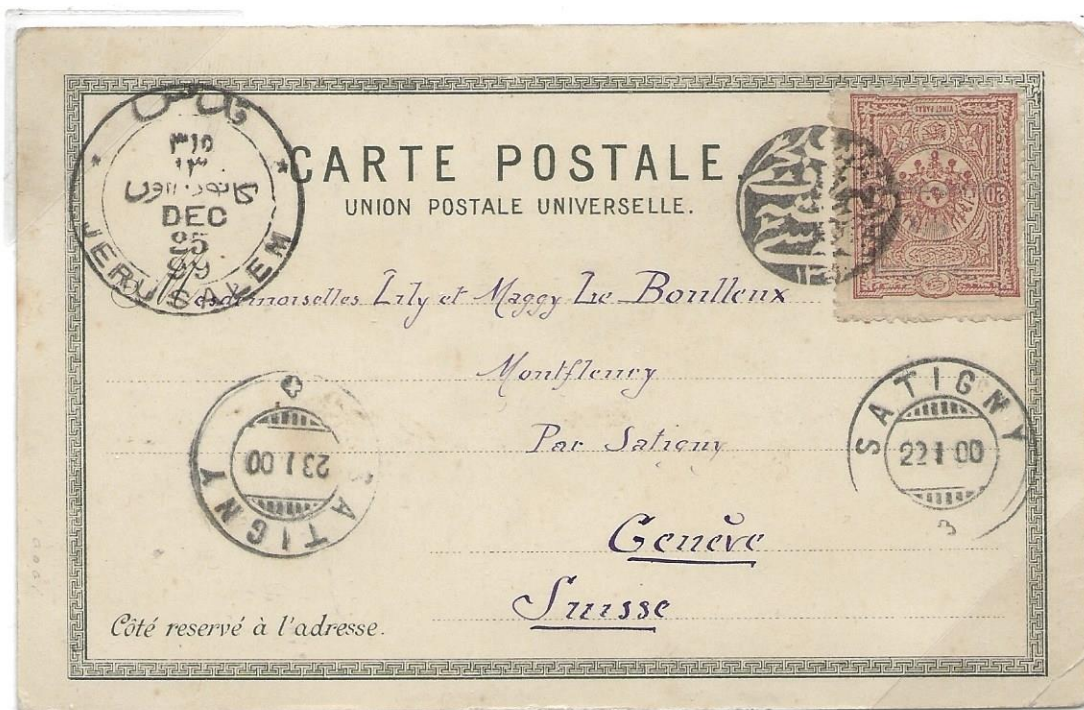 ٣١٥
١٣
DEC
25
99
JERUSALEM
CARTE POSTALE.
UNION POSTALE UNIVERSELLE.
VINGT PARAS
20
Mesdemoiselles Lily et Maggy Le Boulleux
Montfleury
Par Satigny
Genève
Suisse
SATIGNY
23 I 00
SATIGNY
22 I 00
3
Côté reservé à l'adresse.